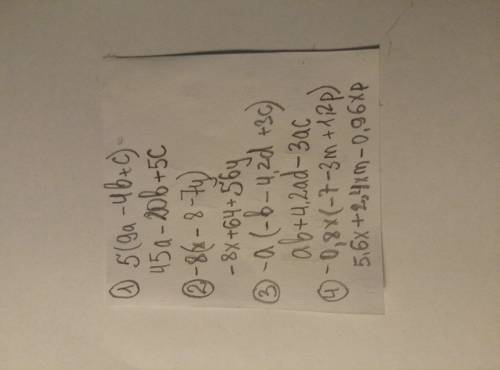 ① 5(9a-4b+c)=
45a-20b+5c
② -8(x-8-7y)
-8x+64+56y
③ -a(-b-4,2d+3c)
ab+4,2ad-3ac
④ -0,8x(-7-3m+1,2p)
5,6x+2,4xm-0,96xp